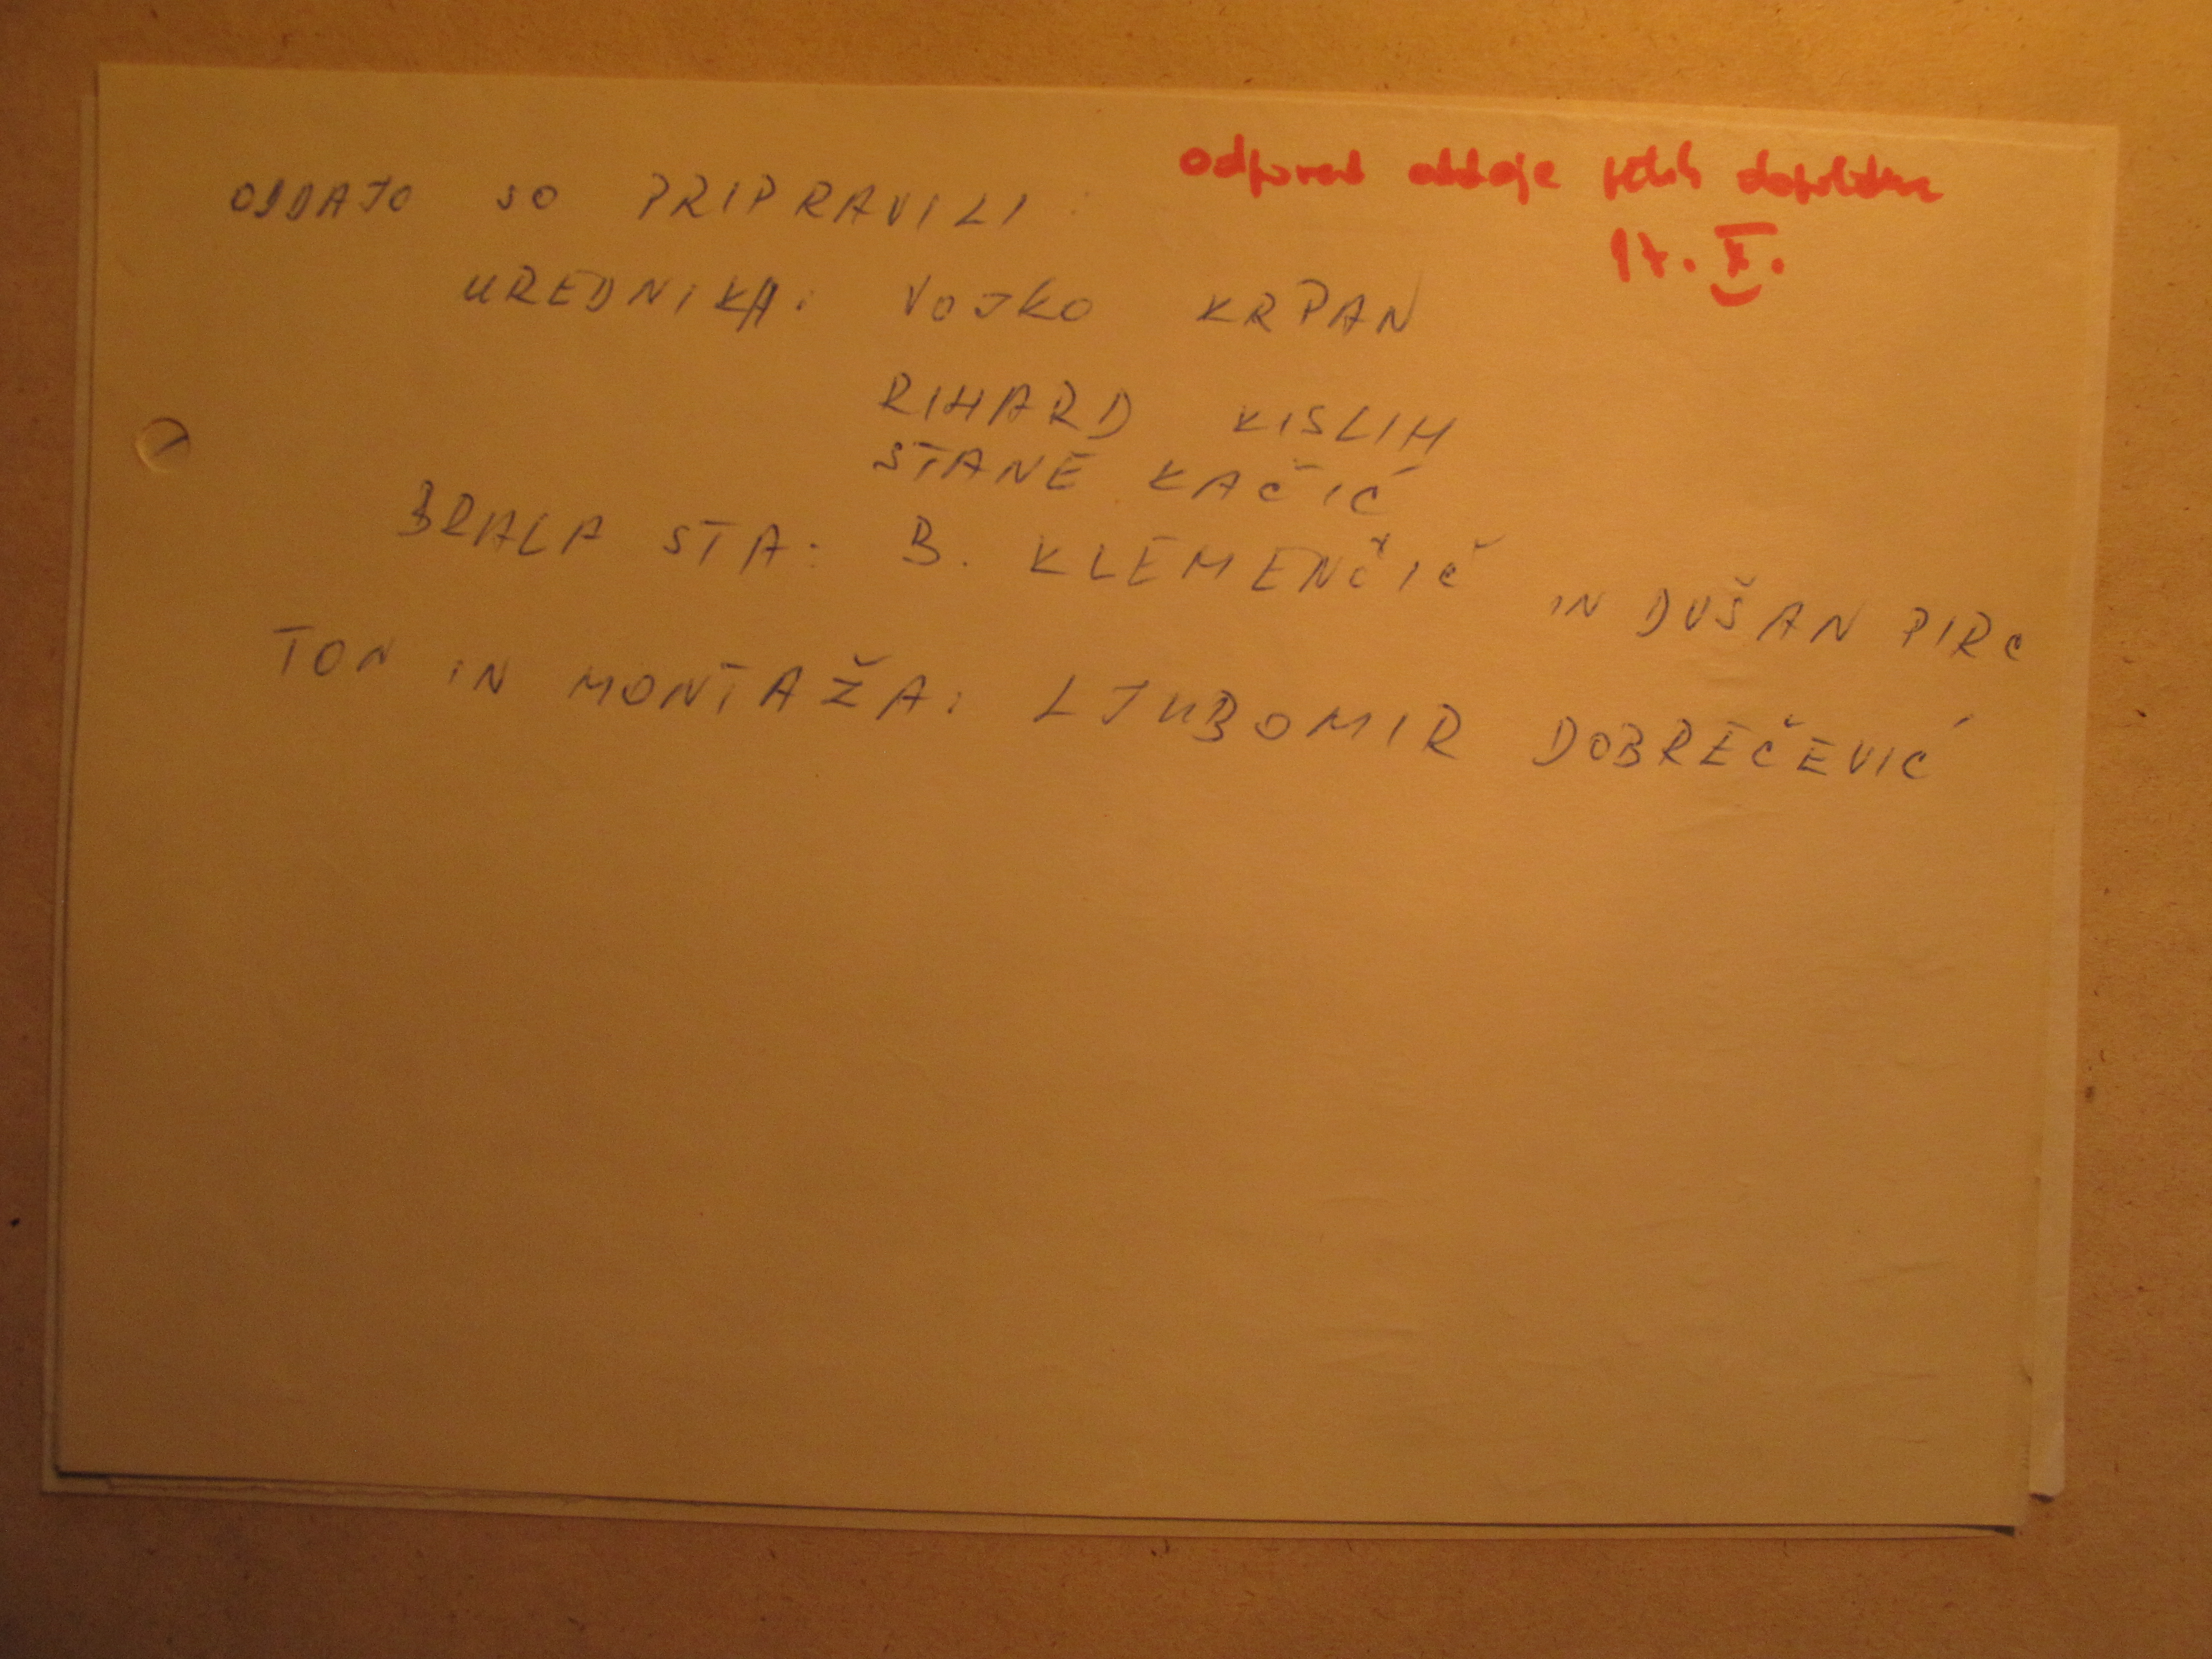 ODDAJO SO PRIPRAVILI:
odpoved oddaje
17. X.
UREDNIKA: VOJKO KRPAN
RIHARD KISLIH
STANE KAČIĆ
BRALA STA: B. KLEMENČIČ IN DUŠAN PIRC
TON IN MONTAŽA: LJUBOMIR DOBREČEVIĆ